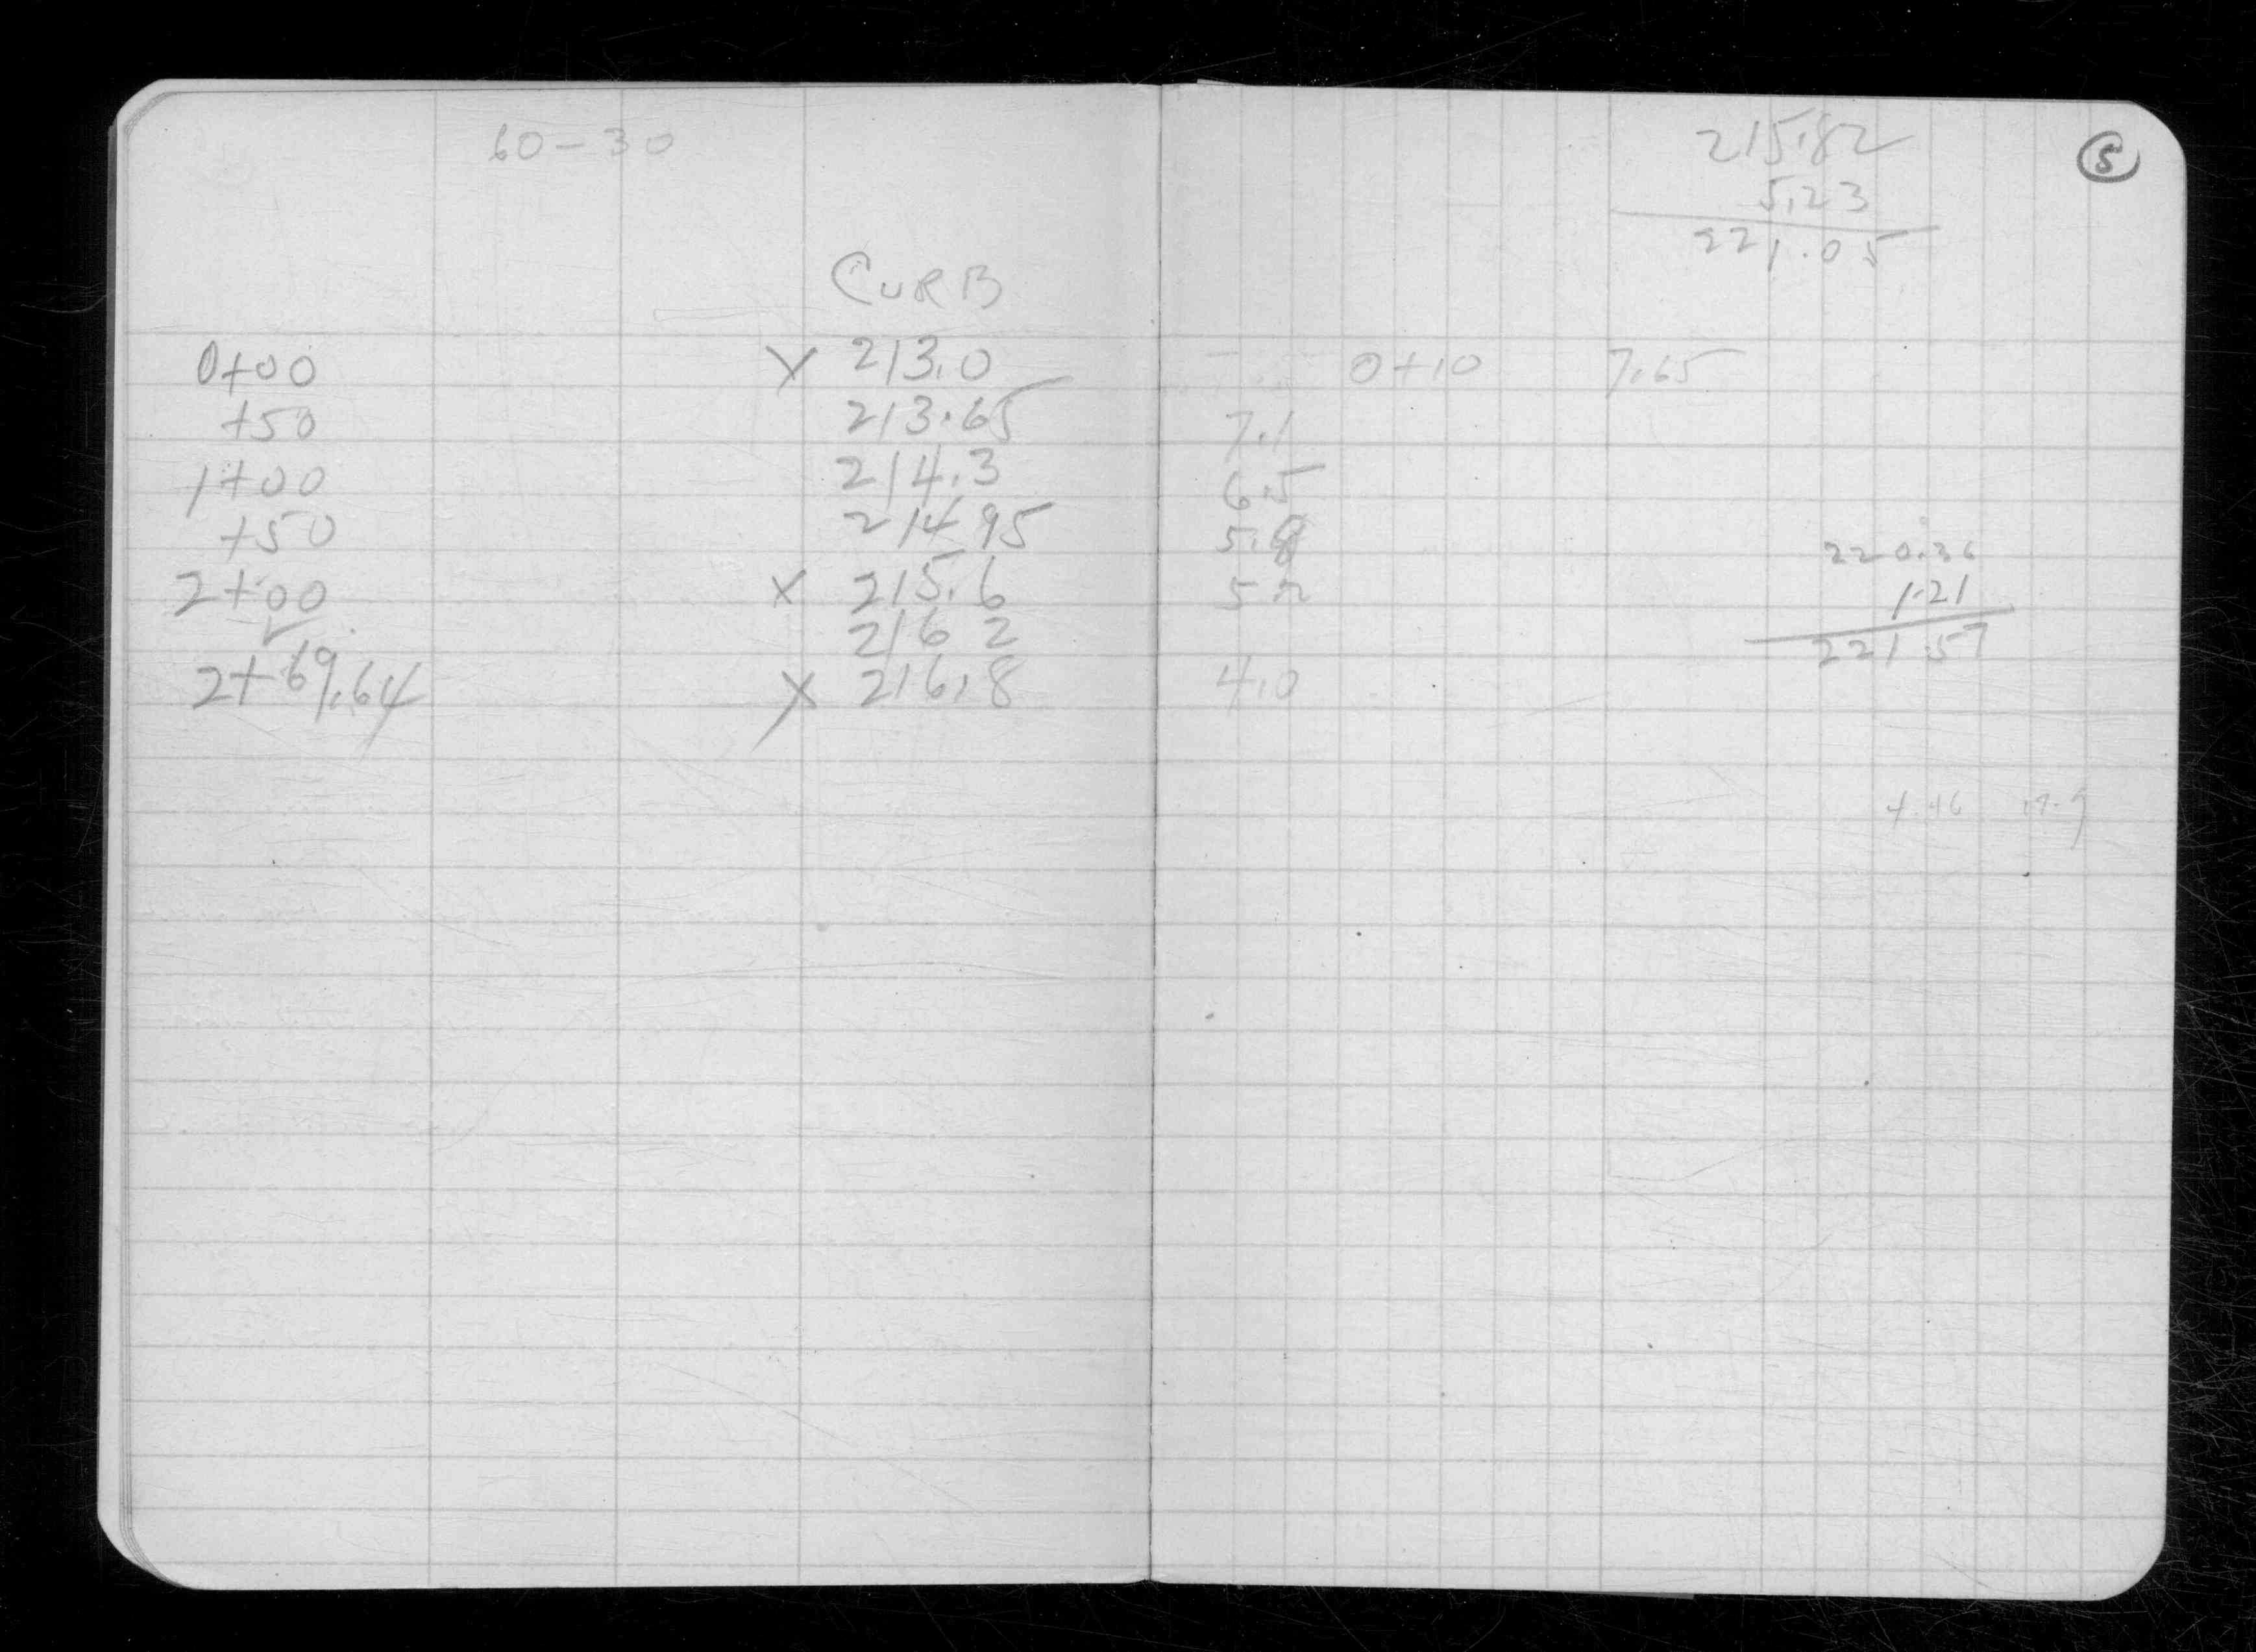 60-30
CURB
0+00 X 213.0
+50 213.65
1+00 214.3
+50 214.95
2+00 X 215.6
216 2
2+69.64 X 216.8
5
215.82
5.23
221.05
0+10 7.65
7.1
6.5
5.8
5.2
4.0
220.36
1.21
221.57